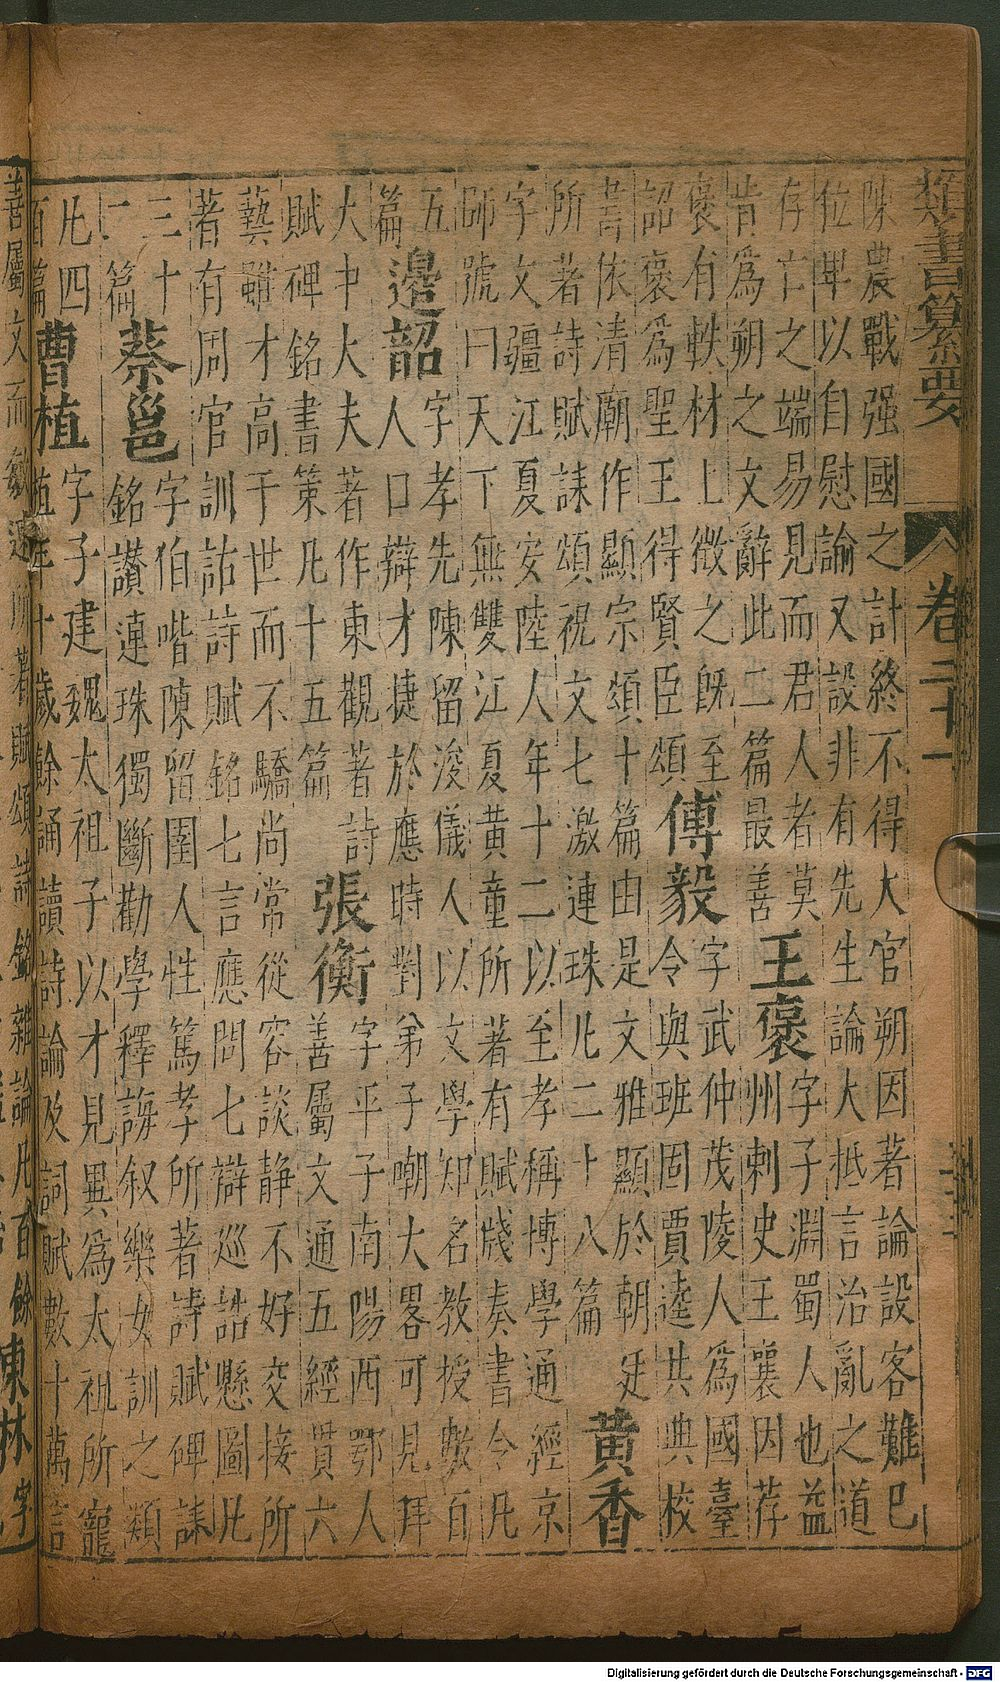 類書纂要 卷二十一
陳農戰强國之計終不得大官朔因著論設客難已
位卑以自慰諭又設非有先生論大抵言治亂之道
存亡之端易見而君人者莫
肯爲朔之文辭此二篇最善
王褒
字子淵蜀人也益
州刺史王襄因荐
褒有軼材上徴之旣至
詔褒爲聖王得賢臣頌
傅毅
字武仲茂陵人爲國臺
令與班固賈逵共典校
書依清廟作顯宗頌十篇由是文雅顯於朝廷
所著詩賦誄頌祝文七激連珠凡二十八篇
黃香
字文疆江夏安陸人年十二以至孝稱博學通經京
師號曰天下無雙江夏黃童所著有賦牋奏書令凡
五
篇
邊韶
字孝先陳留浚儀人以文學知名教授數百
人口辯才捷於應時對弟子嘲大畧可見拜
大中大夫著作東觀著詩
賦碑銘書策凡十五篇
張衡
字平子南陽西鄂人
善屬文通五經貫六
藝雖才高于世而不驕尚常從容談静不好交接所
著有周官訓詁詩賦銘七言應問七辯巡誥懸圖凡
三十
二篇
蔡邕
字伯喈陳留圉人性篤孝所著詩賦碑誄
銘讃連珠獨斷勸學釋誨叙樂女訓之類
凡四
百篇
曹植
字子建魏太祖子以才見異爲太祖所寵
植年十歲餘誦讀詩論及詞賦數十萬言
善屬文而所著賦頌詩銘雜論凡百餘
陳林字
Digitalisierung gefördert durch die Deutsche Forschungsgemeinschaft - DFG